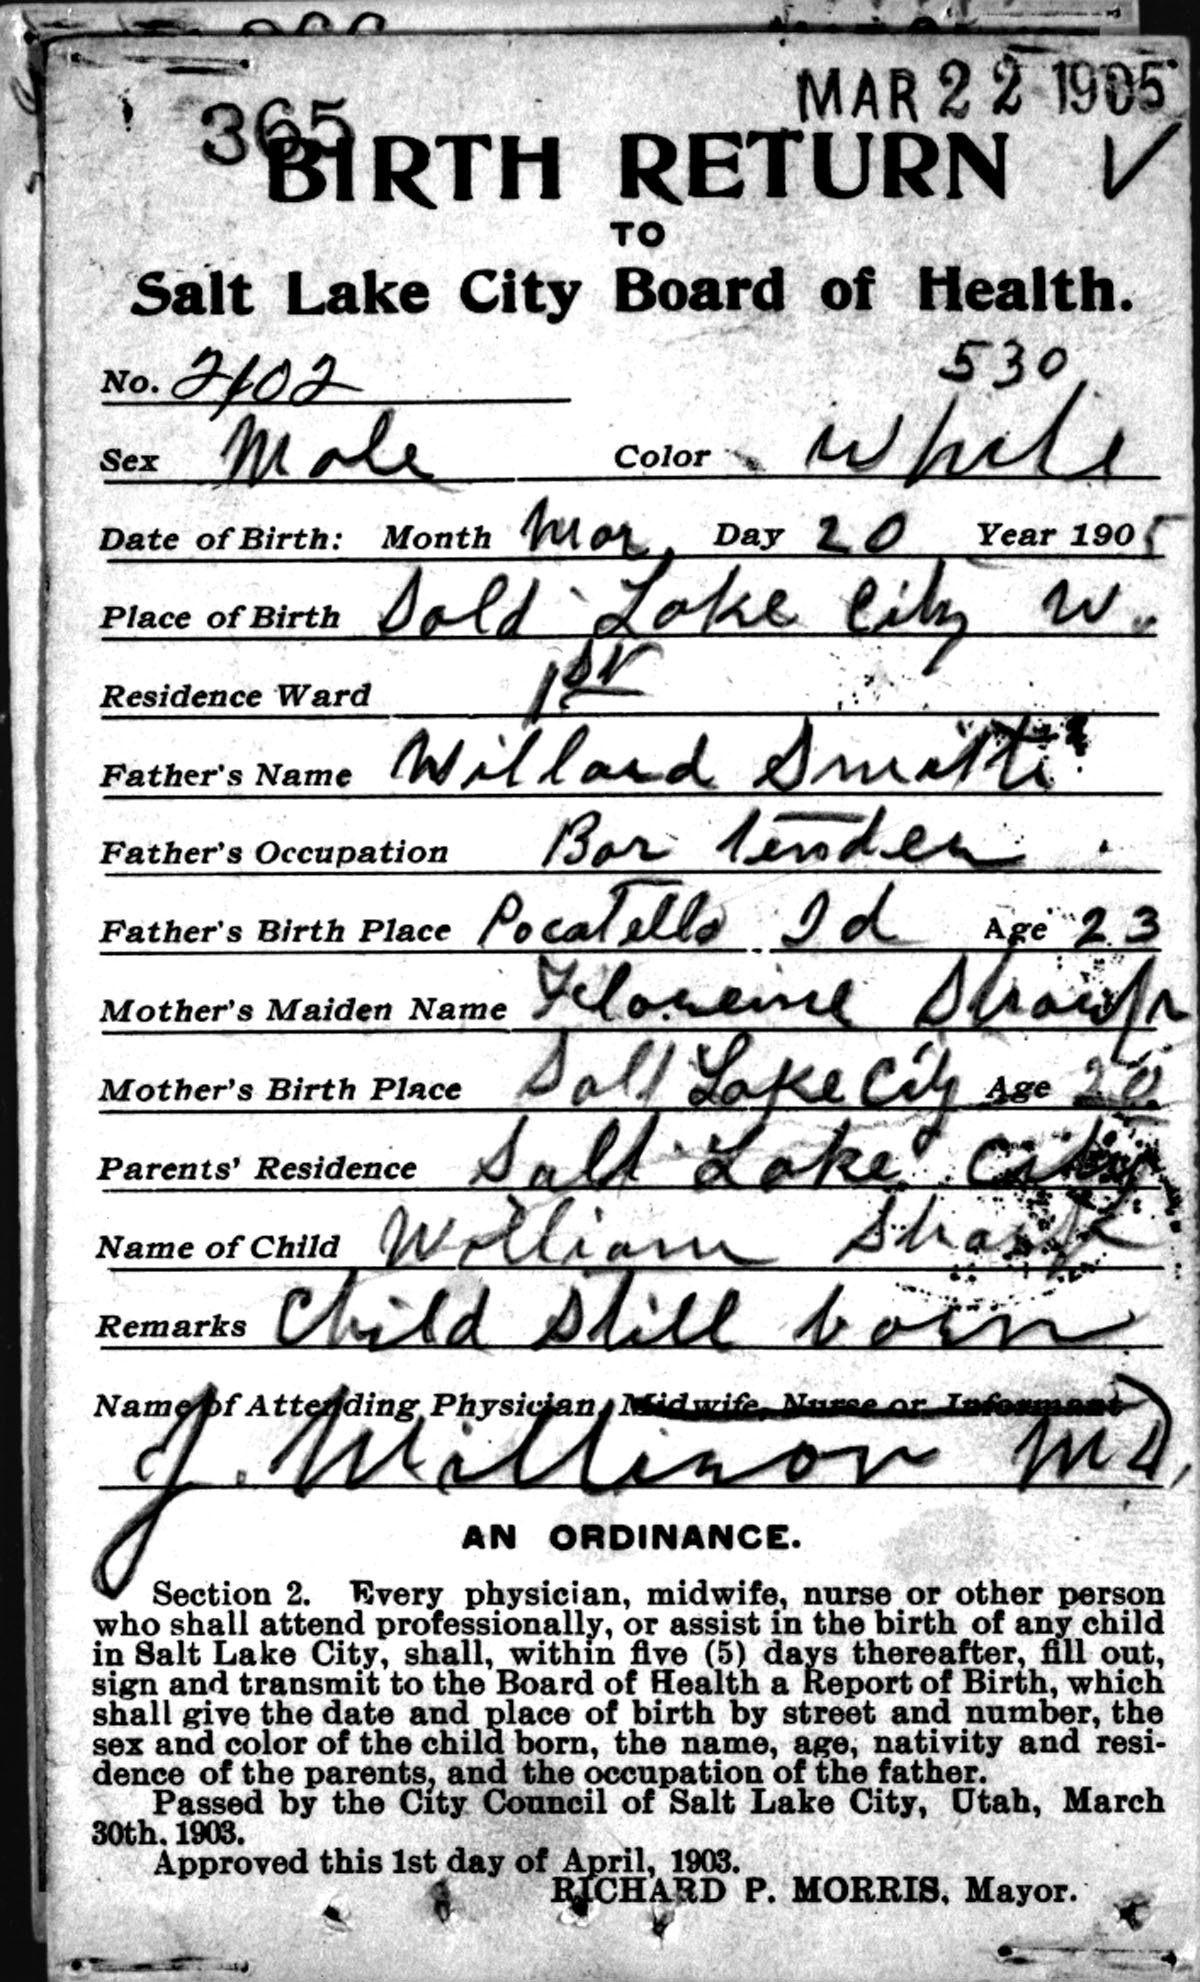 MAR 22 1905
365
BIRTH RETURN
TO
Salt Lake City Board of Health.
530
No. 2102
Sex Male Color White
Date of Birth: Month Mar. Day 20 Year 1905
Place of Birth Salt Lake City
Residence Ward 1st
Father's Name Willard Smith
Father's Occupation Bar tender
Father's Birth Place Pocatello Id Age 23
Mother's Maiden Name Florence Sharp
Mother's Birth Place Salt Lake City Age 20
Parents' Residence Salt Lake City
Name of Child William Sharp
Remarks Child still born
Name of Attending Physician, Midwife, Nurse or Informant
J. Millison MD,
AN ORDINANCE.
Section 2. Every physician, midwife, nurse or other person
who shall attend professionally, or assist in the birth of any child
in Salt Lake City, shall, within five (5) days thereafter, fill out,
sign and transmit to the Board of Health a Report of Birth, which
shall give the date and place of birth by street and number, the
sex and color of the child born, the name, age, nativity and resi-
dence of the parents, and the occupation of the father.
Passed by the City Council of Salt Lake City, Utah, March
30th, 1903.
Approved this 1st day of April, 1903.
RICHARD P. MORRIS, Mayor.